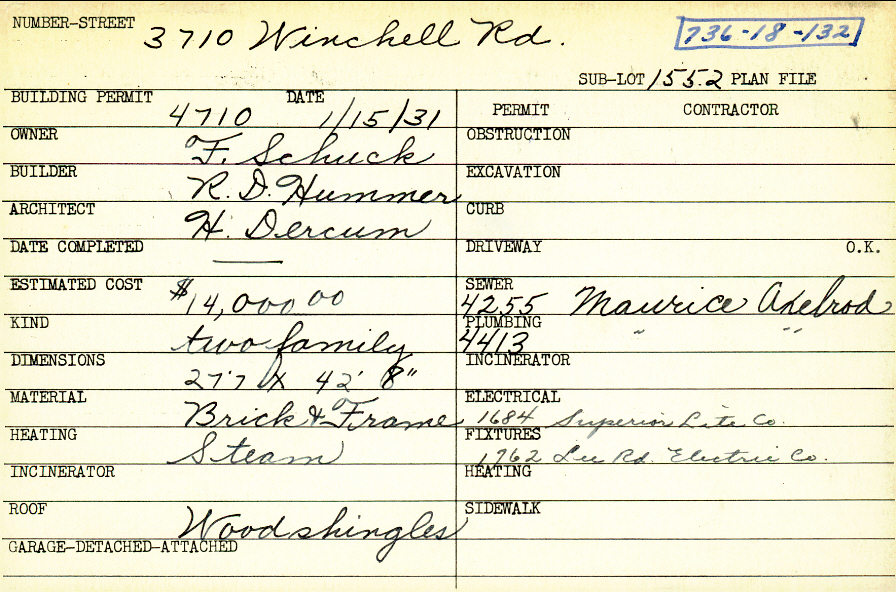 NUMBER-STREET 3710 Winchell Rd. 736-18-132
SUB-LOT 1552 PLAN FILE
BUILDING PERMIT 4710 DATE 1/15/31
PERMIT CONTRACTOR
OWNER F. Schuck
OBSTRUCTION
BUILDER R. D. Hummer
EXCAVATION
ARCHITECT H. Dercum
CURB
DATE COMPLETED —
DRIVEWAY O.K.
ESTIMATED COST $14,000 00
SEWER 4255 Maurice Axelrod
KIND two family
PLUMBING 4413 " "
DIMENSIONS 27'7 X 42' 8"
INCINERATOR
MATERIAL Brick & Frame
ELECTRICAL 1684 Superior Lite Co.
HEATING Steam
FIXTURES 1762 Lee Rd. Electric Co.
INCINERATOR
HEATING
ROOF Wood shingles
SIDEWALK
GARAGE-DETACHED-ATTACHED